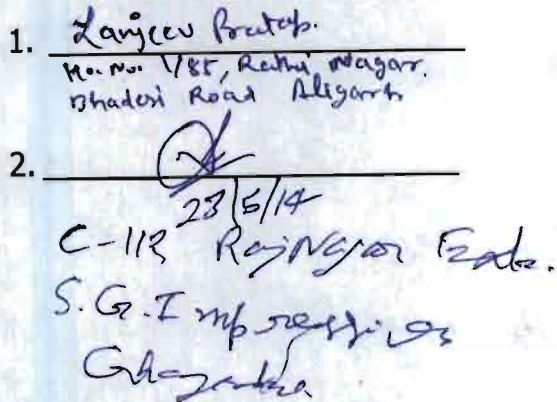 1. Sanjeev Pratap.
H. No. 1/85, Rathi Nagar.
Bhadesi Road Aligarh
2.
23/5/14
C-112 Raj Nagar Extn.
S.G. Impressions